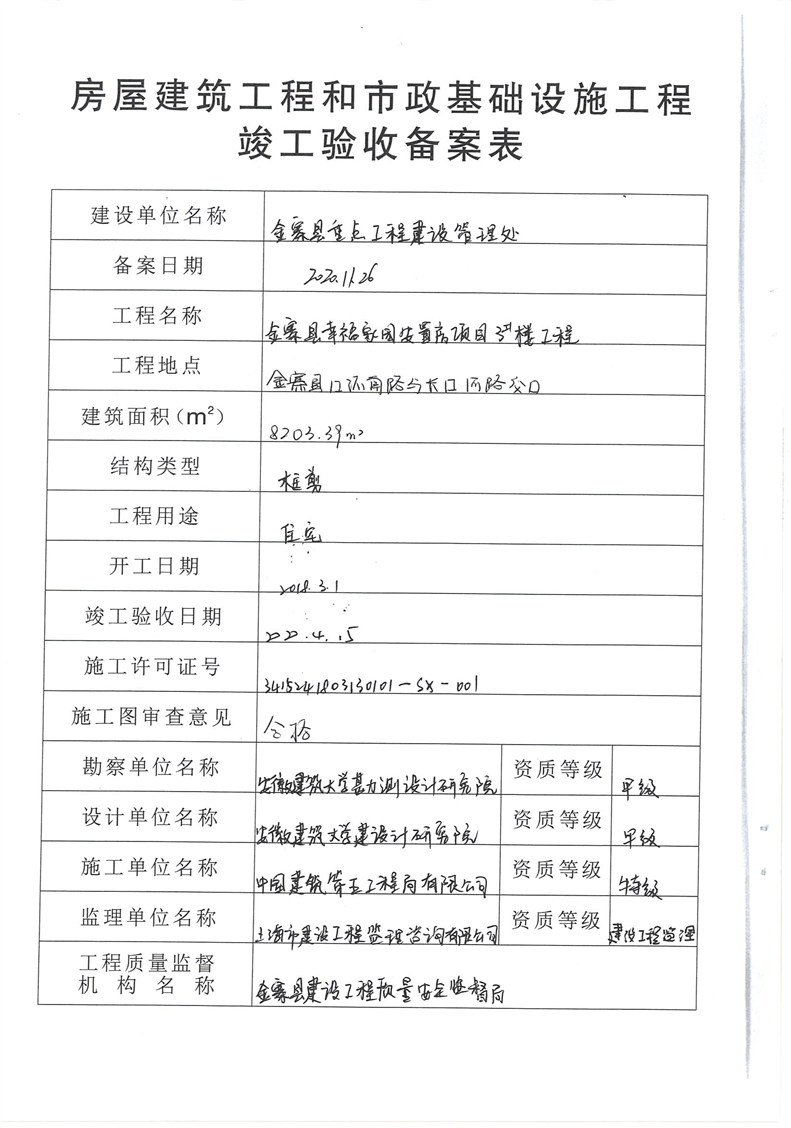 房屋建筑工程和市政基础设施工程
竣工验收备案表
建设单位名称 金寨县重点工程建设管理处
备案日期 2020.11.26
工程名称 金寨县幸福家园安置房项目3#楼工程
工程地点 金寨县 路与 路交口
建筑面积(m²) 8203.39m²
结构类型 框剪
工程用途 住宅
开工日期 2018.3.1
竣工验收日期 2020.4.15
施工许可证号 3415241803130101-SX-001
施工图审查意见 合格
勘察单位名称 安徽建筑大学勘测设计研究院 资质等级 甲级
设计单位名称 安徽建筑大学建设计研究院 资质等级 甲级
施工单位名称 中国建筑第五工程局有限公司 资质等级 特级
监理单位名称 上海市建设工程监理咨询有限公司 资质等级 建设工程监理
工程质量监督
机构名称 金寨县建设工程质量安全监督局